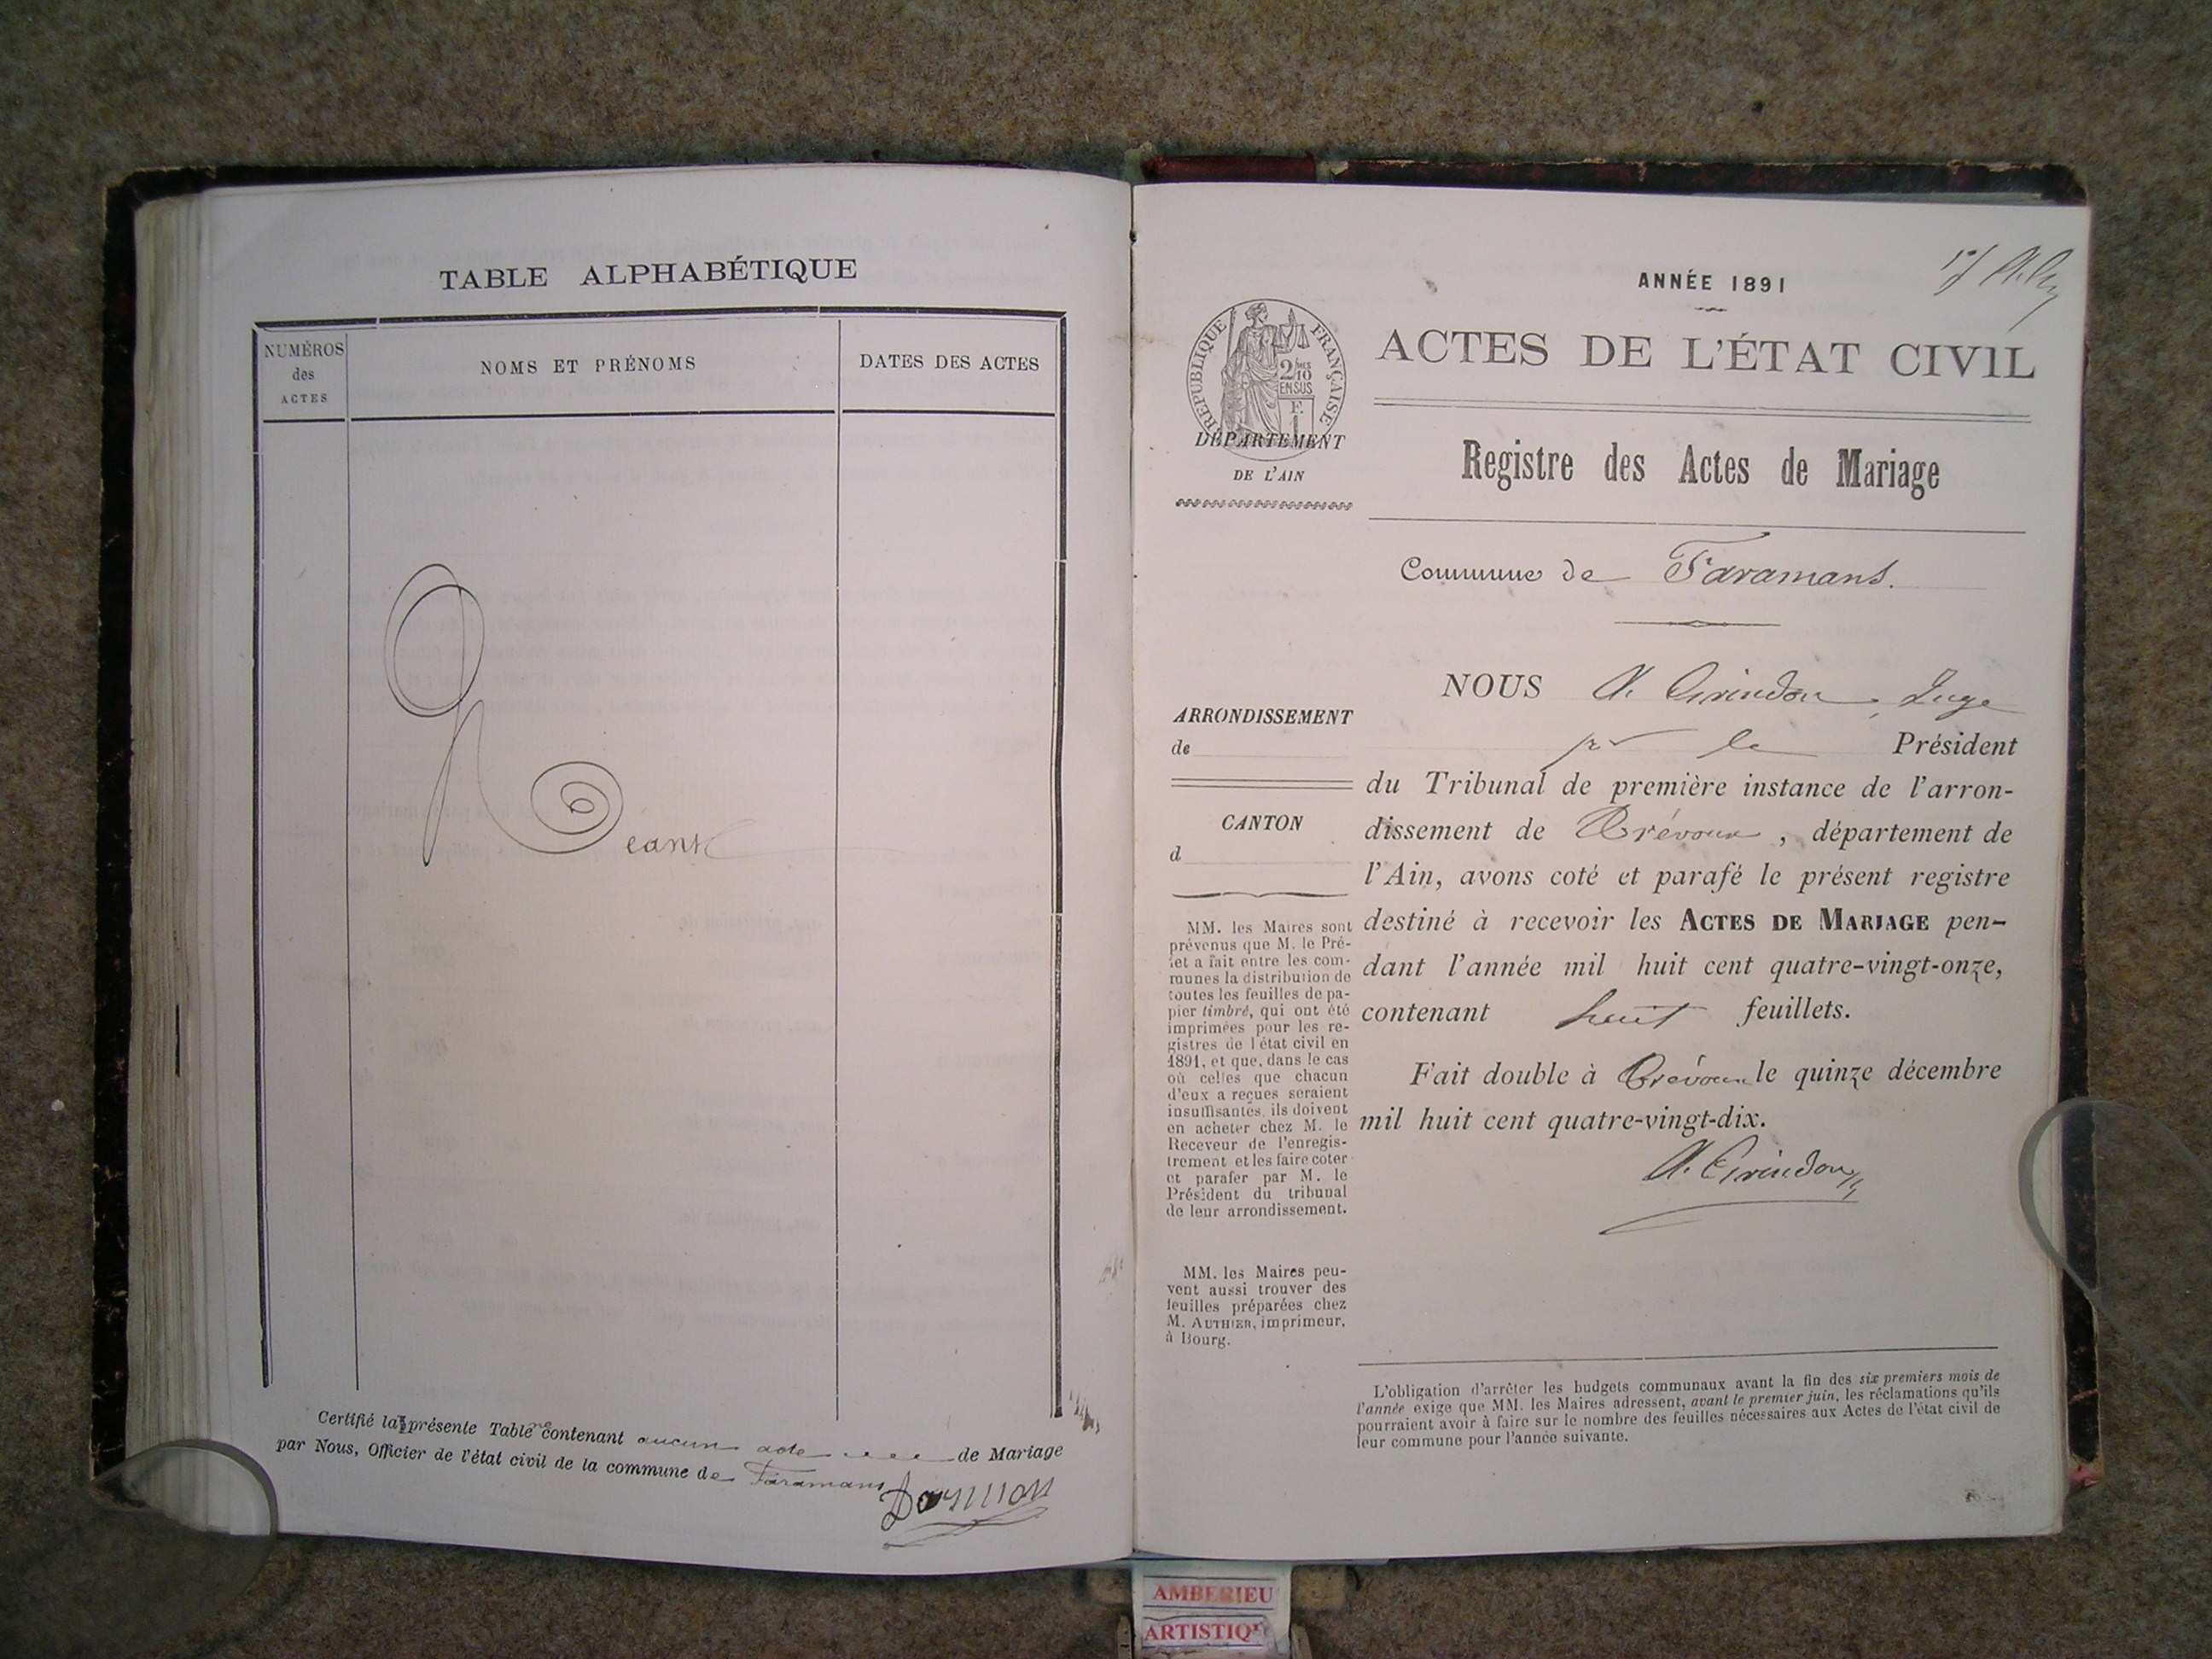 TABLE ALPHABÉTIQUE
NUMÉROS
des
ACTES
NOMS ET PRÉNOMS
DATES DES ACTES
Néant
Certifié la présente Table contenant aucun acte de Mariage
par Nous, Officier de l'état civil de la commune de Faramans
ANNÉE 1891
RÉPUBLIQUE FRANÇAISE
2/10 EN SUS
ACTES DE L'ÉTAT CIVIL
DÉPARTEMENT
DE L'AIN
Registre des Actes de Mariage
Commune de Faramans.
ARRONDISSEMENT
de
CANTON
d
MM. les Maires sont
prévenus que M. le Pré-
fet a fait entre les com-
munes la distribution de
toutes les feuilles de pa-
pier timbré, qui ont été
imprimées pour les re-
gistres de l'état civil en
1891, et que, dans le cas
où celles que chacun
d'eux a reçues seraient
insuffisantes, ils doivent
en acheter chez M. le
Receveur de l'enregis-
trement et les faire coter
et parafer par M. le
Président du tribunal
de leur arrondissement.
MM. les Maires peu-
vent aussi trouver des
feuilles préparées chez
M. AUTHIER, imprimeur,
à Bourg.
NOUS A. Grindon, Juge
pr le Président
du Tribunal de première instance de l'arron-
dissement de Trévoux, département de
l'Ain, avons coté et parafé le présent registre
destiné à recevoir les ACTES DE MARIAGE pen-
dant l'année mil huit cent quatre-vingt-onze,
contenant huit feuillets.
Fait double à Trévoux le quinze décembre
mil huit cent quatre-vingt-dix.
A. Grindon
L'obligation d'arrêter les budgets communaux avant la fin des six premiers mois de
l'année exige que MM. les Maires adressent, avant le premier juin, les réclamations qu'ils
pourraient avoir à faire sur le nombre des feuilles nécessaires aux Actes de l'état civil de
leur commune pour l'année suivante.
AMBERIEU
ARTISTIQ